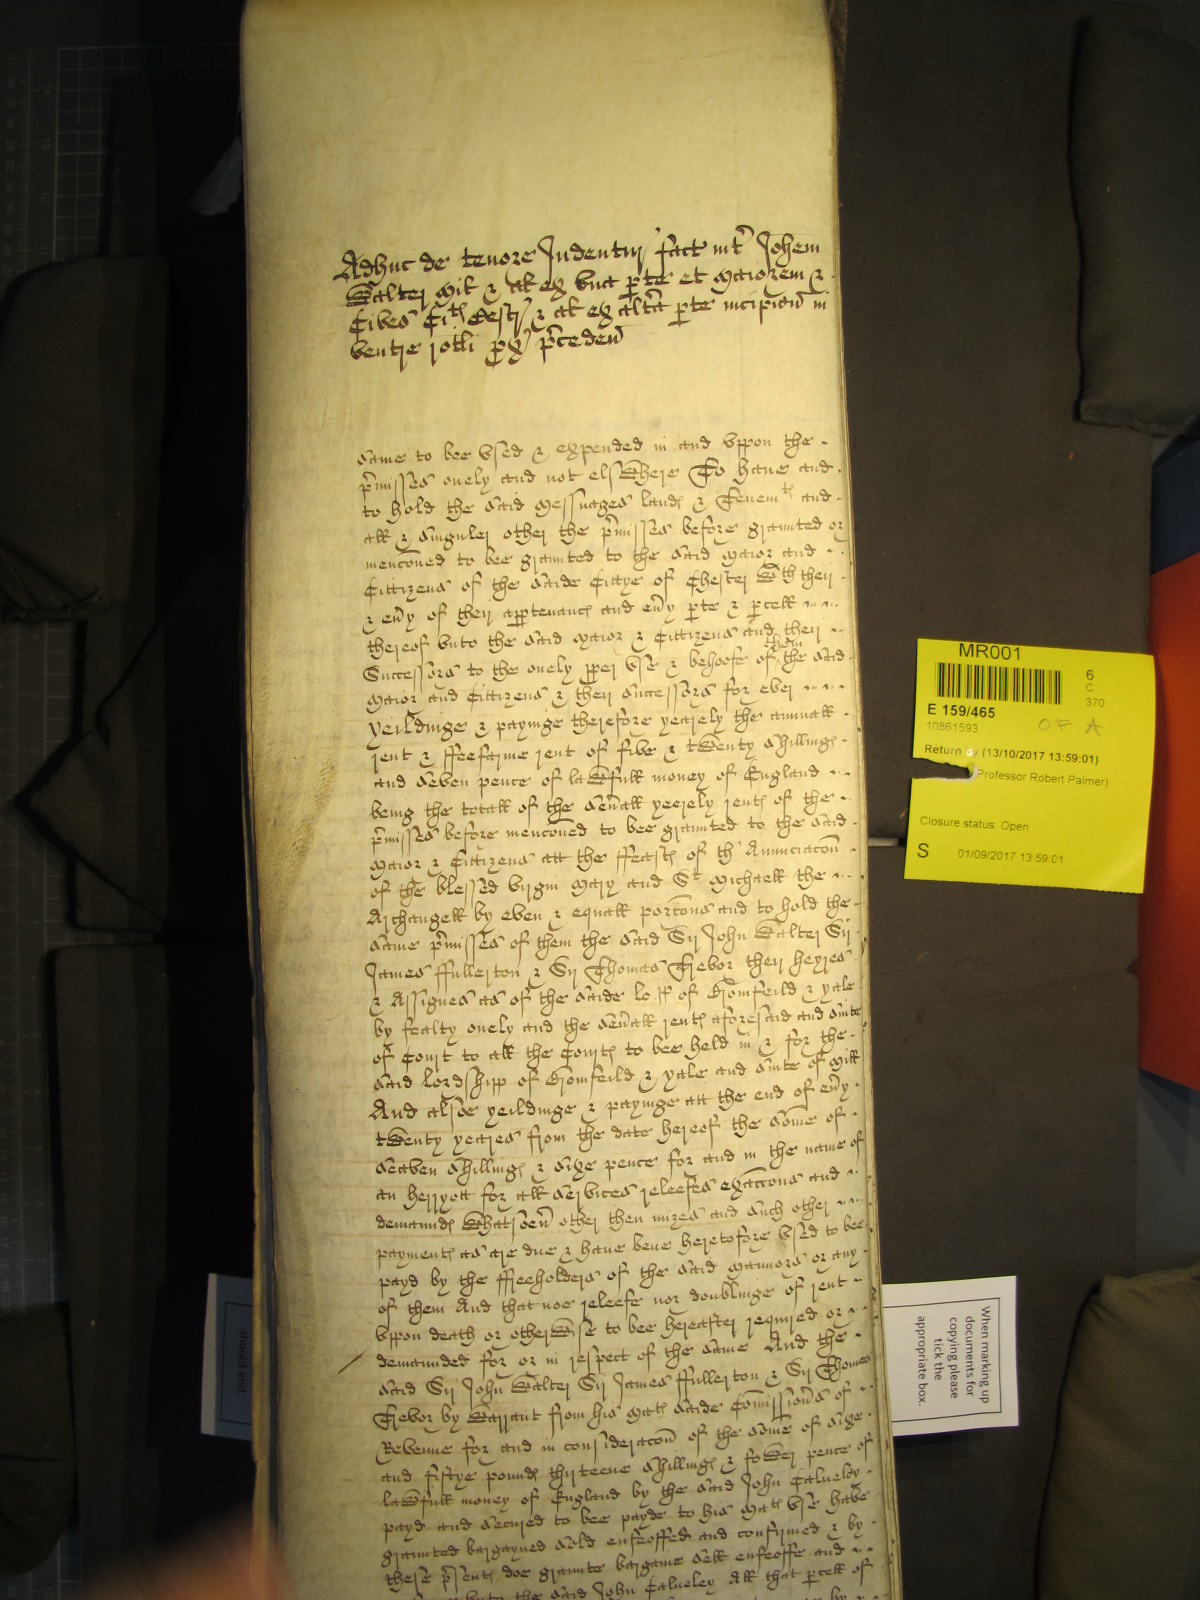 Adhuc de tenore Indentur fact int Johem
Walter Mil & al ex una pte et Maiorem &
Cives Cith Cestr & al ex altra pte incipien in
ventre rotli px pceden
same to bee used & expended in and uppon the
pmisses onely and not elswhere To have and
to hold the said Messuages lands & Tenemts and
all & singuler other the pmisses before graunted or
menconed to bee graunted to the said Maior and
Cittizens of the saide Cittye of Chester wth their
& evy of their apptenancs and evy pte & pcell
thereof unto the said Maior & Cittizens and their
Successors to the onely pper use & behoofe of them the said
Maior and Cittizens & their successors for ever
Yeildinge & payinge therefore yearely the annuall
rent & ffeefarme rent of five & twenty shillings
and seven pence of lawfull money of England
being the totall of the sevall yeerely rents of the
pmisses before menconed to bee graunted to the said
Maior & Cittizens att the ffeasts of th' Annunciacon
of the blessed virgin Mary and St Michaell the
Archangell by even & equall porcons and to hold the
same pmisses of them the said Sir John Walter Sir
James ffullerton & Sir Thomas Trevor their heyres
& Assignes as of the saide lopp of Bromfeild & yale
by fealty onely and the sevall rents aforesaid and suite
of Court to all the Courts to bee held in & for the
said lordshipp of Bromfeild & yale and suite of Mill
And alsoe yeildinge & payinge att the end of evy
twenty yeares from the date hereof the some of
seaven shillings & sixe pence for and in the name of
an herryott for all services releefes exaccons and
demaunds whatsoev other then mizes and such other
payments as are due & have bene heretofore used to bee
payd by the ffreeholders of the said Mannors or any
of them And that noe releefe nor doublinge of rent
uppon death or otherwise to bee hereafter required or
demaunded for or in respect of the same And the
said Sir John Walter Sir James ffullerton & Sir Thomas
Trevor by Warrant from his Mats saide Comissions of
Revenue for and in consideracon of the some of sixe
and fiftye pounds thirteene shillings & fower pence of
lawfull money of England by the said John Calveley
payd and secured to bee payde to his Mats use have
graunted bargayned sold enfeoffed and confirmed & by
these psents doe graunte bargaine sell enfeoffe and
unto the said John Calveley All that pcell of
MR001
6
C
370
E 159/465
OF A
10861593
Return by (13/10/2017 13:59:01)
Professor Robert Palmer)
Closure status: Open
S 01/09/2017 13:59:01
When marking up
documents for
copying please
tick the
appropriate box.
should end